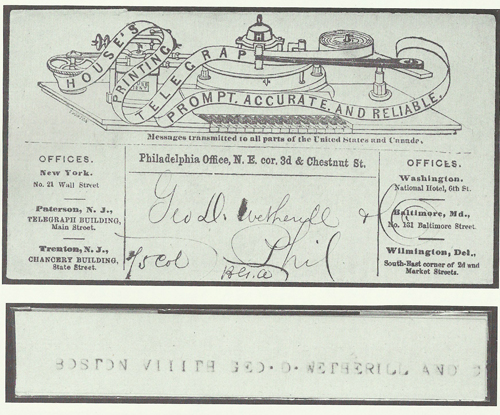 HOUSE'S
PRINTING
TELEGRAP
PROMPT. ACCURATE. AND RELIABLE.
Messages transmitted to all parts of the United States and Canada,
OFFICES.
New York.
No. 21 Wall Street
Paterson, N. J.,
TELEGRAPH BUILDING,
Main Street.
Trenton, N. J.,
CHANCERY BUILDING,
State Street.
Philadelphia Office, N. E. cor. 3d & Chestnut St.
Geo D. Wetherill & Co
Phil
OFFICES.
Washington.
National Hotel, 6th St.
Baltimore, Md.,
No. 131 Baltimore Street.
Wilmington, Del.,
South-East corner of 2d and
Market Streets.
BOSTON VIIIIth GEO·D·WETHERILL AND